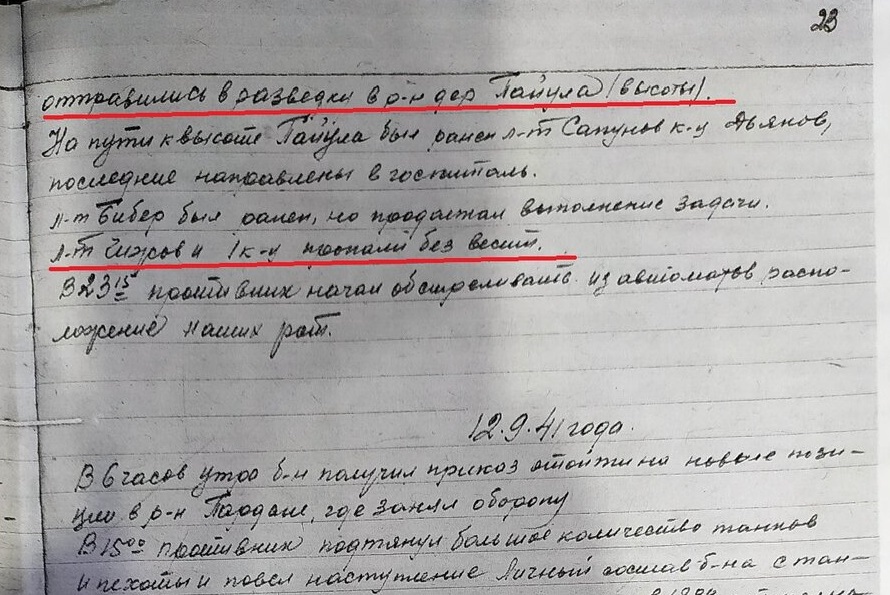 23
отправились в разведку в р-н дер Пайула (высоты).
На пути к высоте Пайула был ранен л-т Сапунов к-ц Дьянов,
последние направлены в госпиталь.
л-т Бибер был ранен, но продолжал выполнение задачи.
л-т Чижов и 1 к-ц пропали без вести.
В 23 15 противник начал обстреливать из автоматов распо-
ложение наших рот.
12.9.41 года.
В 6 часов утра б-н получил приказ отойти на новые пози-
ции в р-н Пардале, где занял оборону
В 15 00 противник подтянул большое количество танков
и пехоты и повел наступление Личный состав б-на с тан-